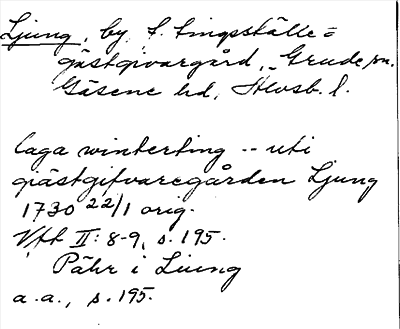 Ljung, by f. tingsställe=
gästgivargård, Grude sn.
Gäsene hd, Älvsb. l.
laga winterting -- uti
giästgifvaregården Ljung
1730 22/1 orig.
Vft II: 8-9, s. 195.
Pähr i Liung
a.a., s. 195.